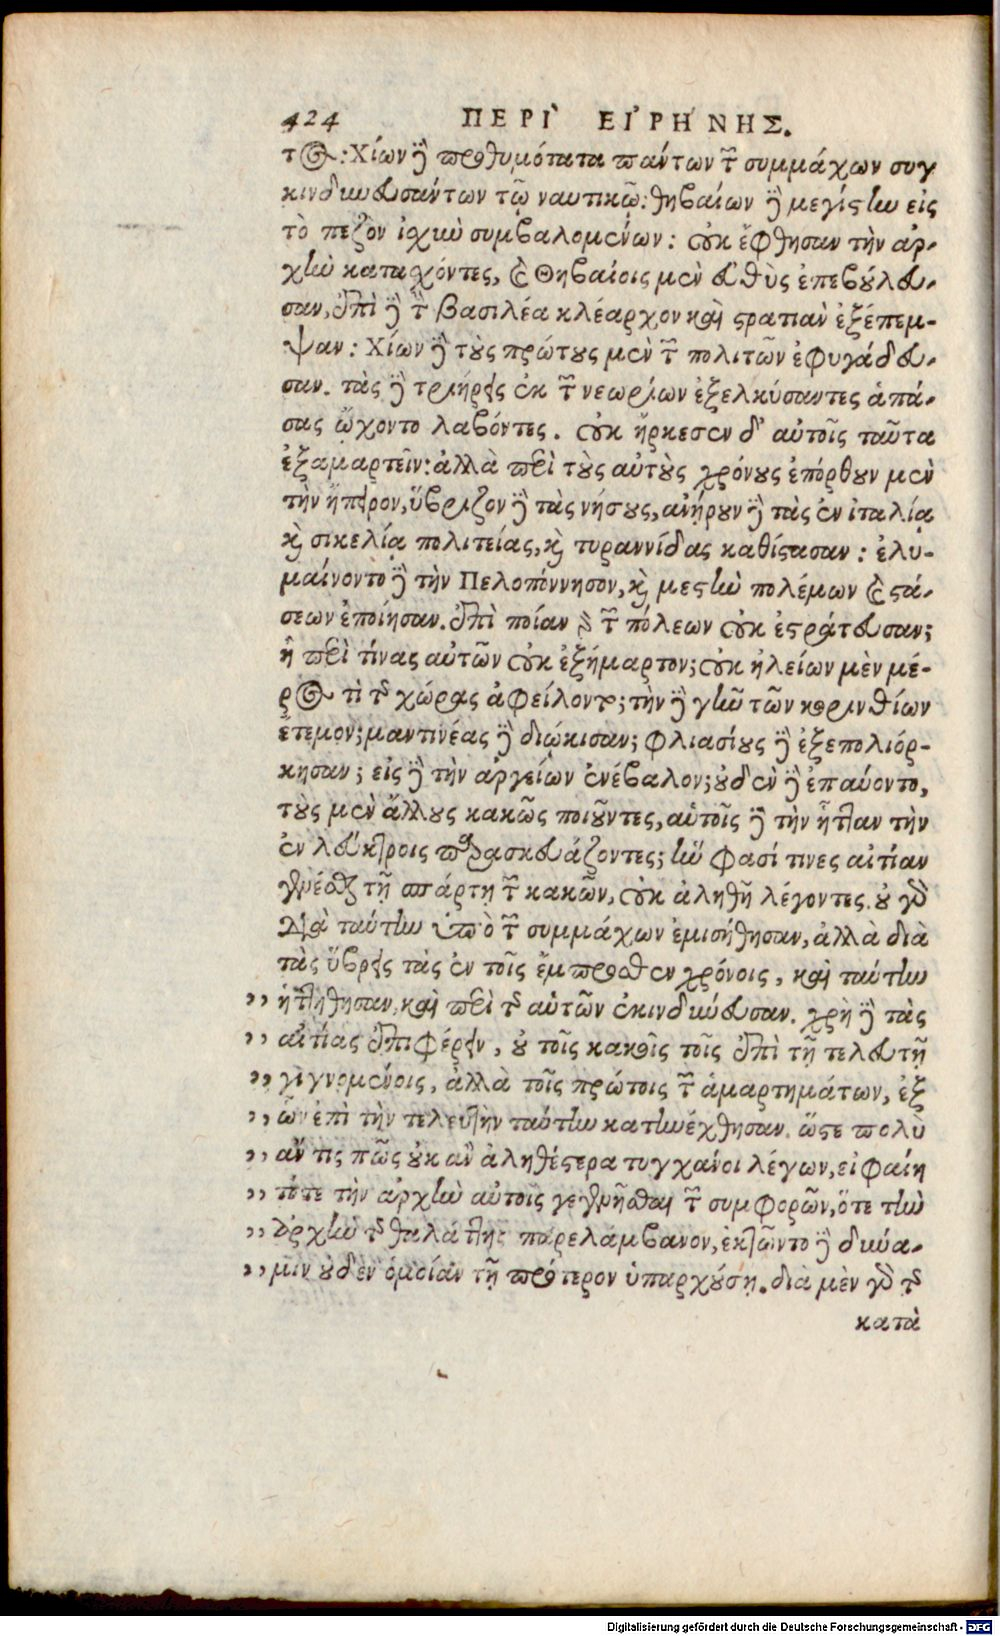 424 ΠΕΡῚ ΕἸΡΉΝΗΣ.
τος: Χίων δὲ προθυμότατα πάντων τῶν συμμάχων συγ
κινδυνευσάντων τῷ ναυτικῷ: θηβαίων δὲ μεγίστην εἰς
τὸ πεζὸν ἰχὺν συμβαλομένων: οὐκ ἔφθησαν τὴν ἀρ-
χὴν κατασχόντες, καὶ Θηβαίοις μὲν εὐθὺς ἐπεβούλευ-
σαν, ἐπὶ δὲ τὸν βασιλέα κλέαρχον καὶ στρατιὰν ἐξέπεμ-
ψαν: Χίων δὲ τοὺς πρώτους μὲν τῶν πολιτῶν ἐφυγάδευ-
σαν. τὰς δὲ τριήρεις ἐκ τῶν νεωρίων ἐξελκύσαντες ἁπά-
σας ᾤχοντο λαβόντες. οὐκ ἤρκεσεν δ' αὐτοῖς ταῦτα
ἐξαμαρτεῖν: ἀλλὰ περὶ τοὺς αὐτοὺς χρόνους ἐπόρθουν μὲν
τὴν ἤπειρον, ὕβριζον δὲ τὰς νήσους, ἀνῄρουν δὲ τὰς ἐν ἰταλίᾳ
καὶ σικελίᾳ πολιτείας, καὶ τυραννίδας καθίστασαν: ἐλυ-
μαίνοντο δὲ τὴν Πελοπόννησον, καὶ μεστὴν πολέμων καὶ στά-
σεων ἐποίησαν. ἐπὶ ποίαν γὰρ τῶν πόλεων οὐκ ἐστράτευσαν;
ἢ περὶ τίνας αὐτῶν οὐκ ἐξήμαρτον; οὐκ ἠλείων μὲν μέ-
ρος τι τῆς χώρας ἀφείλοντο; τὴν δὲ γῆν τῶν κορινθίων
ἔτεμον; μαντινέας δὲ διῴκισαν; φλιασίους δὲ ἐξεπολιόρ-
κησαν; εἰς δὲ τὴν ἀργείων ἐνέβαλον; οὐδὲν δὲ ἐπαύοντο,
τοὺς μὲν ἄλλους κακῶς ποιοῦντες, αὑτοῖς δὲ τὴν ἧτταν τὴν
ἐν λεύκτροις παρασκευάζοντες; ἣν φασί τινες αἰτίαν
γενέσθαι τῇ σπάρτῃ τῶν κακῶν, οὐκ ἀληθῆ λέγοντες. οὐ γὰρ
διὰ ταύτην ὑπὸ τῶν συμμάχων ἐμισήθησαν, ἀλλὰ διὰ
τὰς ὕβρεις τὰς ἐν τοῖς ἔμπροσθεν χρόνοις, καὶ ταύτην
,, ἡττήθησαν, καὶ περὶ τῆς αὑτῶν ἐκινδύνευσαν. χρὴ δὲ τὰς
,, αἰτίας ἐπιφέρειν, οὐ τοῖς κακοῖς τοῖς ἐπὶ τῇ τελευτῇ
,, γιγνομένοις, ἀλλὰ τοῖς πρώτοις τῶν ἁμαρτημάτων, ἐξ
,, ὧν ἐπὶ τὴν τελευτὴν ταύτην κατηνέχθησαν. ὥστε πολὺ
,, ἄν τις πῶς οὐκ ἂν ἀληθέστερα τυγχάνοι λέγων, εἰ φαίη
,, τότε τὴν ἀρχὴν αὐτοῖς γεγενῆσθαι τῶν συμφορῶν, ὅτε τὴν
,, ἀρχὴν τῆς θαλάττης παρελάμβανον, ἐκτῶντο δὲ δύνα-
,, μιν οὐδὲν ὁμοίαν τῇ πρότερον ὑπαρχούσῃ. διὰ μὲν γὰρ τῆς
κατὰ
Digitalisierung gefördert durch die Deutsche Forschungsgemeinschaft - DFG